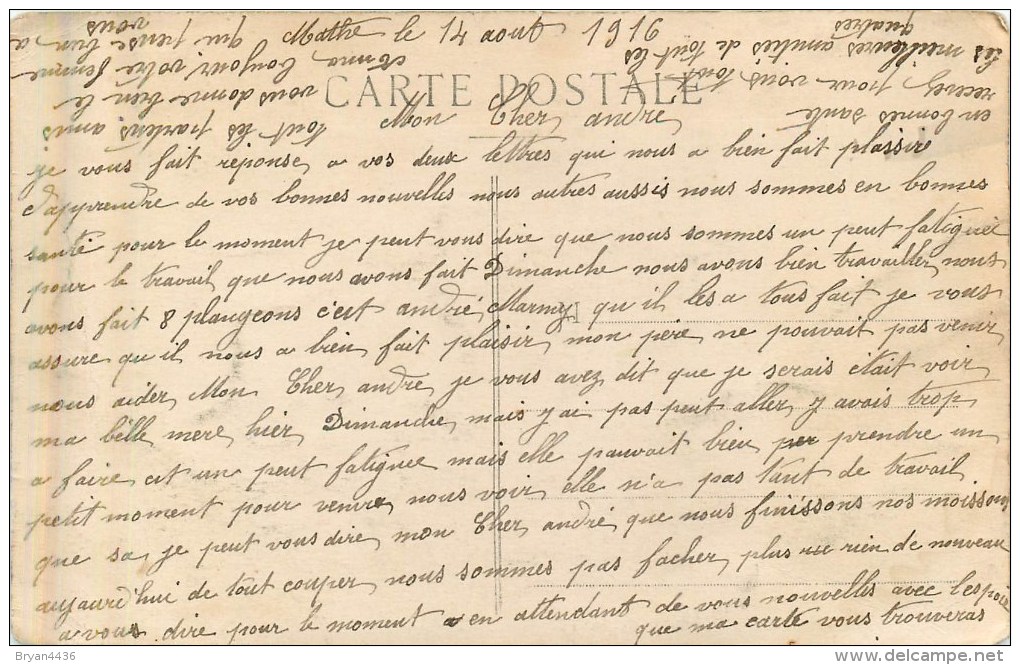 Mathe le 14 aout 1916
CARTE POSTALE
Mon Cher andre,
je vous fait réponse, a vos deux lettres qui nous a bien fait plaisire
d'apprendre de vos bonnes nouvelles nous autres aussis nous sommes en bonnes
santé pour le moment je peut vous dire que nous sommes un peut fatiguée
pour le travail que nous avons fait Dimanche nous avons bien travailler, nous
avons fait 8 plongeons c'est andré, Marmy qu'il les a tous fait je vous
assure qu'il nous a bien fait plaisir, mon père ne pouvait pas venir
nous aider, Mon Cher, andré, je vous avez dit que je serais était voir
ma belle mère, hier, Dimanche, mais j'ai pas peut aller, y avais trop
a faire et un peut fatiguee mais elle pouvait bien prendre un
petit moment pour venire, nous voir, elle n'a pas tant de travail
que sa, je peut vous dire, mon Cher, andré, que nous finissons nos moissons
aujaurd'hui de tout couper, nous sommes pas facher, plus rien de nouveau
a vous dire pour le moment en attendant de vous nouvelles avec l'espoir
que ma carte vous trouveras
en bonnes santé
recevez pour vous tout
les meilleures amitiés de tout les
quatres
Tout les parlens amis
vous donne bien le
bonjour votre femme
qui pense bien a
vous
Bryan4436
delcampe.net